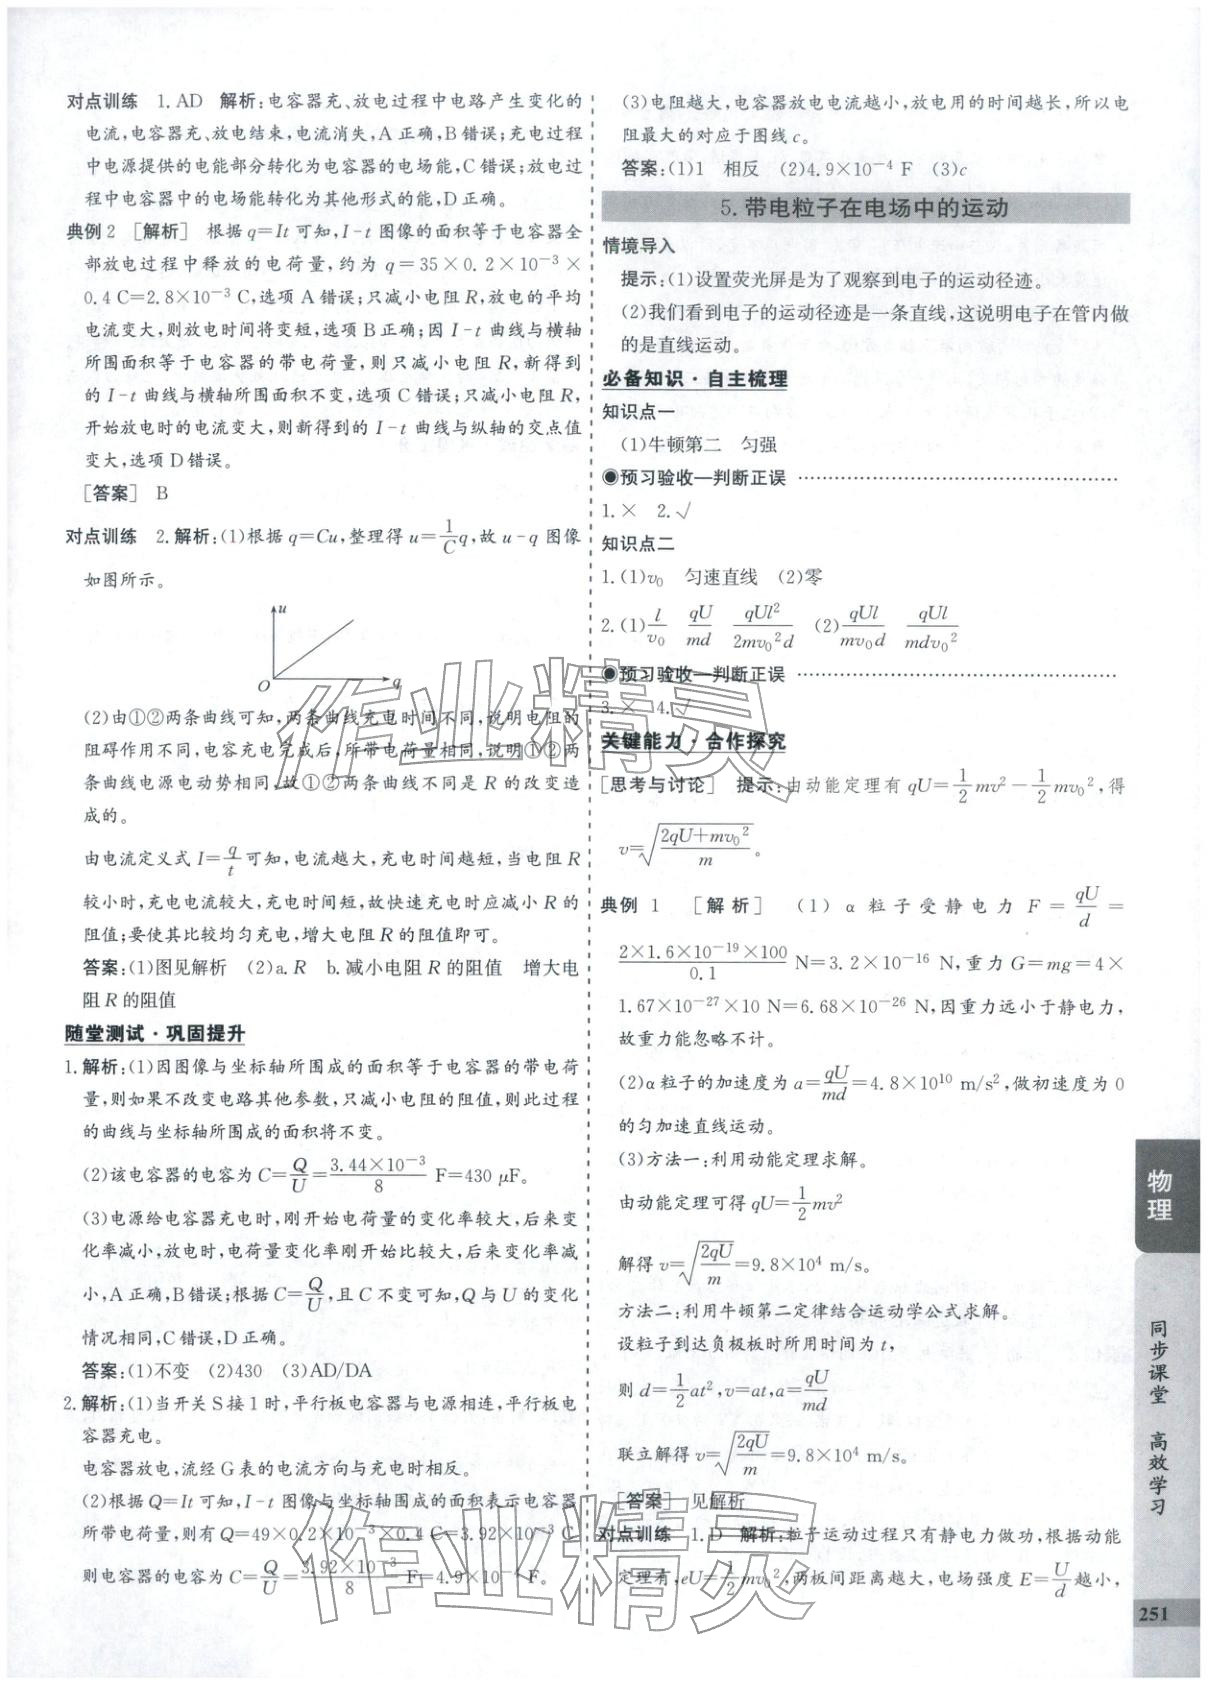 对点训练　1. AD　解析:电容器充、放电过程中电路产生变化的
电流,电容器充、放电结束,电流消失,A 正确,B错误;充电过程
中电源提供的电能部分转化为电容器的电场能,C错误;放电过
程中电容器中的电场能转化为其他形式的能,D正确。
典例 2　[解析]　根据 q=It 可知,I-t 图像的面积等于电容器全
部放电过程中释放的电荷量,约为 q=35×0.2×10⁻³×
0.4 C=2.8×10⁻³ C,选项 A错误;只减小电阻R,放电的平均
电流变大,则放电时间将变短,选项B正确;因 I-t 曲线与横轴
所围面积等于电容器的带电荷量,则只减小电阻 R,新得到
的 I-t 曲线与横轴所围面积不变,选项 C错误;只减小电阻R,
开始放电时的电流变大,则新得到的 I-t 曲线与纵轴的交点值
变大,选项D错误。
[答案]　B
对点训练　2. 解析:(1)根据 q=Cu,整理得 u=1/C q,故 u-q 图像
如图所示。
u
O
q
(2)由①②两条曲线可知,两条曲线充电时间不同,说明电阻的
阻碍作用不同,电容充电完成后,所带电荷量相同,说明①②两
条曲线电源电动势相同,故①②两条曲线不同是 R 的改变造
成的。
由电流定义式 I=q/t 可知,电流越大,充电时间越短,当电阻 R
较小时,充电电流较大,充电时间短,故快速充电时应减小 R 的
阻值;要使其比较均匀充电,增大电阻R的阻值即可。
答案:(1)图见解析　(2)a.R　b.减小电阻R的阻值　增大电
阻R的阻值
随堂测试·巩固提升
1. 解析:(1)因图像与坐标轴所围成的面积等于电容器的带电荷
量,则如果不改变电路其他参数,只减小电阻的阻值,则此过程
的曲线与坐标轴所围成的面积将不变。
(2)该电容器的电容为 C=Q/U=3.44×10⁻³/8 F=430 μF。
(3)电源给电容器充电时,刚开始电荷量的变化率较大,后来变
化率减小,放电时,电荷量变化率刚开始比较大,后来变化率减
小,A正确,B错误;根据 C=Q/U,且 C 不变可知,Q 与 U 的变化
情况相同,C错误,D正确。
答案:(1)不变　(2)430　(3)AD/DA
2. 解析:(1)当开关 S接 1 时,平行板电容器与电源相连,平行板电
容器充电。
电容器放电,流经 G 表的电流方向与充电时相反。
(2)根据 Q=It 可知,I-t 图像与坐标轴围成的面积表示电容器
所带电荷量,则有 Q=49×0.2×10⁻³×0.4 C=3.92×10⁻³ C
则电容器的电容为 C=Q/U=3.92×10⁻³/8 F=4.9×10⁻⁴ F。
(3)电阻越大,电容器放电电流越小,放电用的时间越长,所以电
阻最大的对应于图线 c。
答案:(1)1　相反　(2)4.9×10⁻⁴ F　(3)c
5. 带电粒子在电场中的运动
情境导入
提示:(1)设置荧光屏是为了观察到电子的运动径迹。
(2)我们看到电子的运动径迹是一条直线,这说明电子在管内做
的是直线运动。
必备知识·自主梳理
知识点一
(1)牛顿第二　匀强
◉预习验收—判断正误
1. ×　2. √
知识点二
1. (1)v₀　匀速直线　(2)零
2. (1)l/v₀　qU/md　qUl²/2mv₀²d　(2)qUl/mv₀d　qUl/mdv₀²
◉预习验收—判断正误
3. ×　4. √
关键能力·合作探究
[思考与讨论]　提示:由动能定理有 qU=1/2 mv²−1/2 mv₀²,得
v=√((2qU+mv₀²)/m)。
典例 1　[解析]　(1) α 粒子受静电力 F=qU/d=
2×1.6×10⁻¹⁹×100/0.1 N=3.2×10⁻¹⁶ N,重力 G=mg=4×
1.67×10⁻²⁷×10 N=6.68×10⁻²⁶ N,因重力远小于静电力,
故重力能忽略不计。
(2)α粒子的加速度为 a=qU/md=4.8×10¹⁰ m/s²,做初速度为 0
的匀加速直线运动。
(3)方法一:利用动能定理求解。
由动能定理可得 qU=1/2 mv²
解得 v=√(2qU/m)=9.8×10⁴ m/s。
方法二:利用牛顿第二定律结合运动学公式求解。
设粒子到达负极板时所用时间为 t,
则 d=1/2 at²,v=at,a=qU/md
联立解得 v=√(2qU/m)=9.8×10⁴ m/s。
[答案]　见解析
对点训练　1. D　解析:粒子运动过程只有静电力做功,根据动能
定理有,eU=1/2 mv₀²,两板间距离越大,电场强度 E=U/d 越小,
物理
同步课堂　高效学习
251
作业精灵
作业精灵